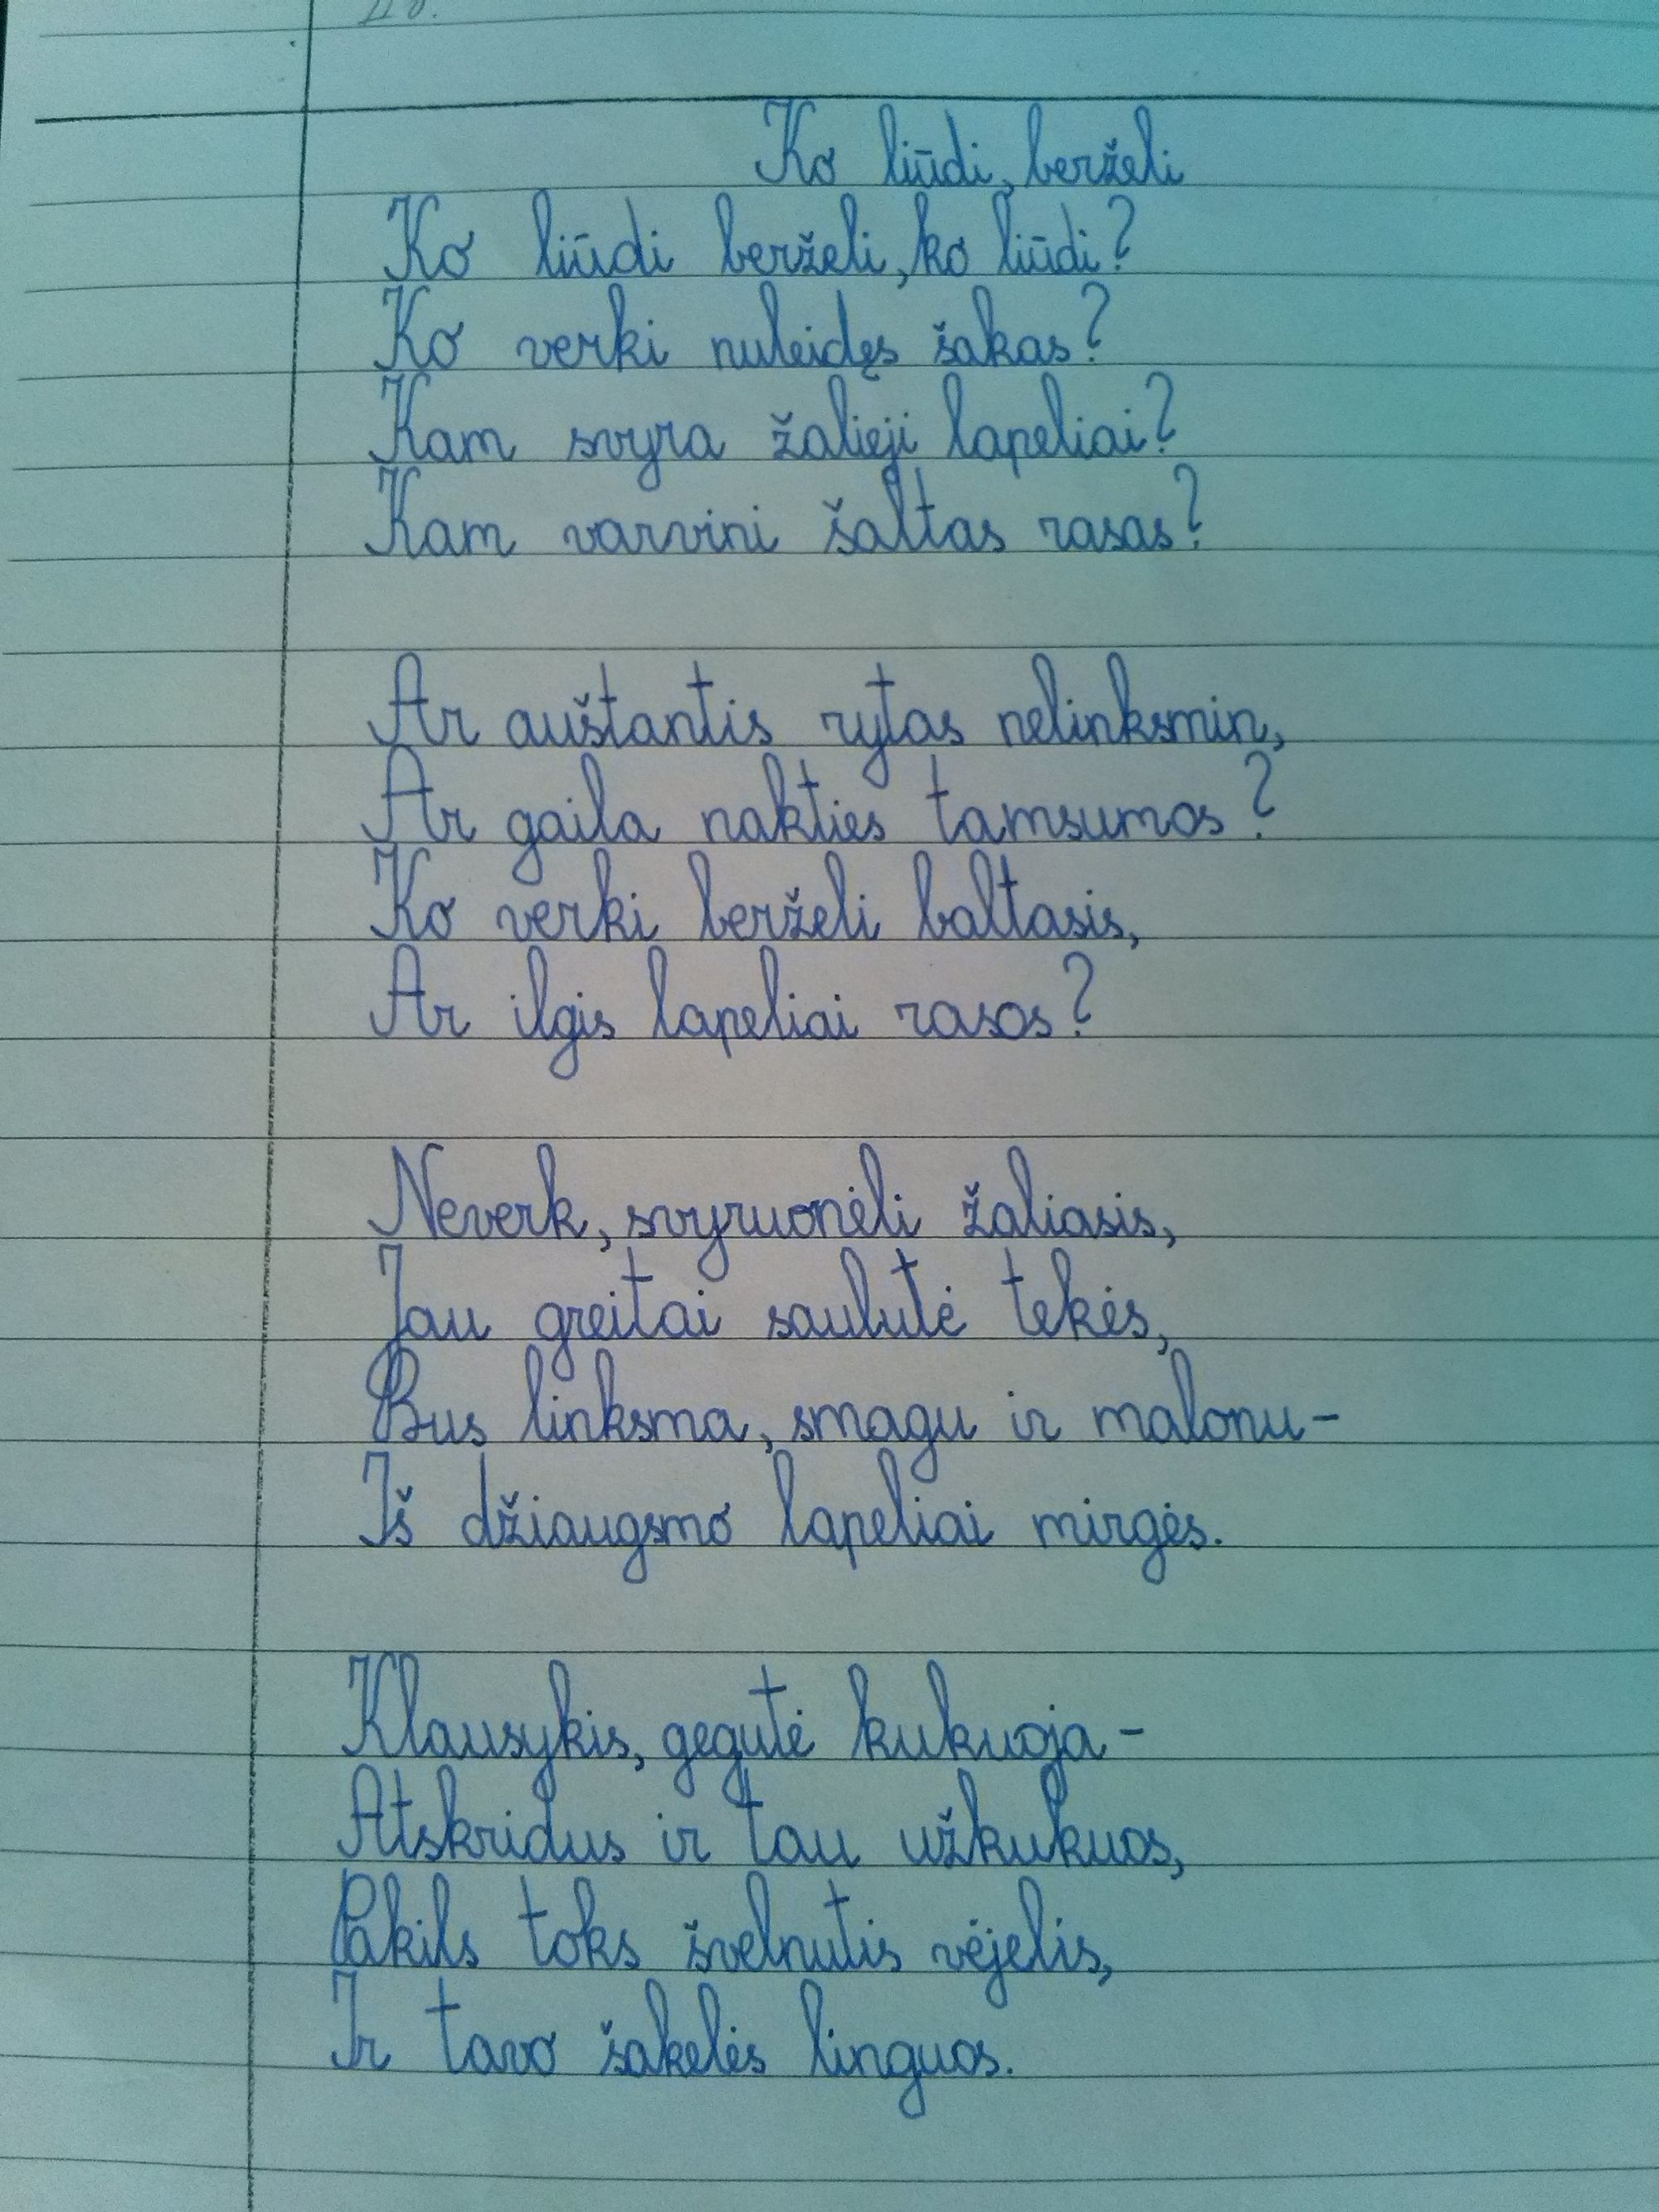 Ko liūdi, berželi
Ko liūdi berželi, ko liūdi?
Ko verki nuleidęs šakas?
Kam svyra žalieji lapeliai?
Kam varvini šaltas rasas?
Ar auštantis rytas nelinksmin,
Ar gaila nakties tamsumos?
Ko verki berželi baltasis,
Ar ilgis lapeliai rasos?
Neverk, svyruonėli žaliasis,
Jau greitai saulutė tekės,
Bus linksma, smagu ir malonu-
Iš džiaugsmo lapeliai mirgės.
Klausykis, gegutė kukuoja-
Atskridus ir tau užkukuos,
Pakils toks švelnutis vėjelis,
Ir tavo šakelės linguos.